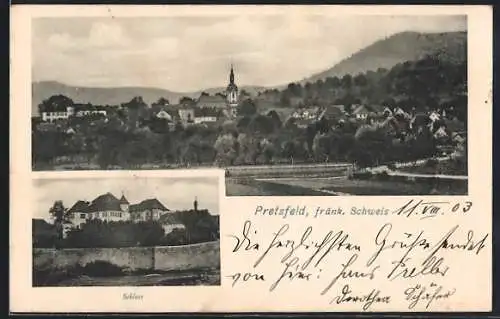 Pretzfeld, fränk. Schweiz 11. VIII. 03
Die herzlichsten Grüße sendet
von hier: Hans Preller
Dorothea Schäfer
Schloss